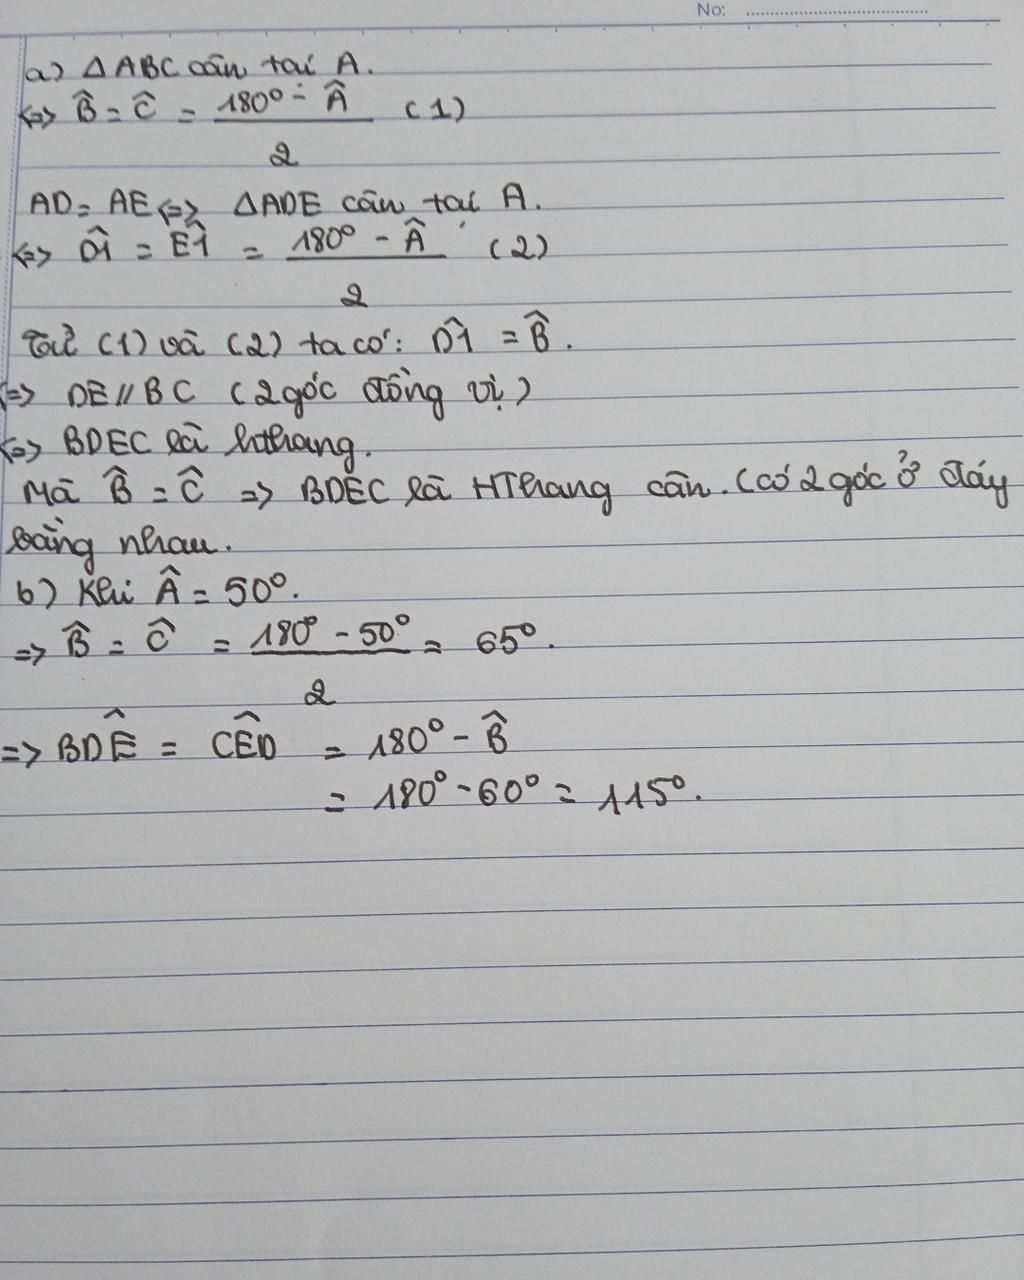 No:
a) ΔABC cân tại A.
<=> B̂ = Ĉ = (180° - Â)/2 (1)
AD = AE <=> ΔADE cân tại A.
<=> D̂1 = Ê1 = (180° - Â)/2 (2)
Từ (1) và (2) ta có: D̂1 = B̂.
=> DE // BC (2 góc đồng vị)
<=> BDEC là hthang.
Mà B̂ = Ĉ => BDEC là HThang cân. (có 2 góc ở đáy
bằng nhau.
b) Khi Â = 50°.
=> B̂ = Ĉ = (180° - 50°)/2 = 65°.
=> BDÊ = CÊD = 180° - B̂
= 180° - 60° = 115°.